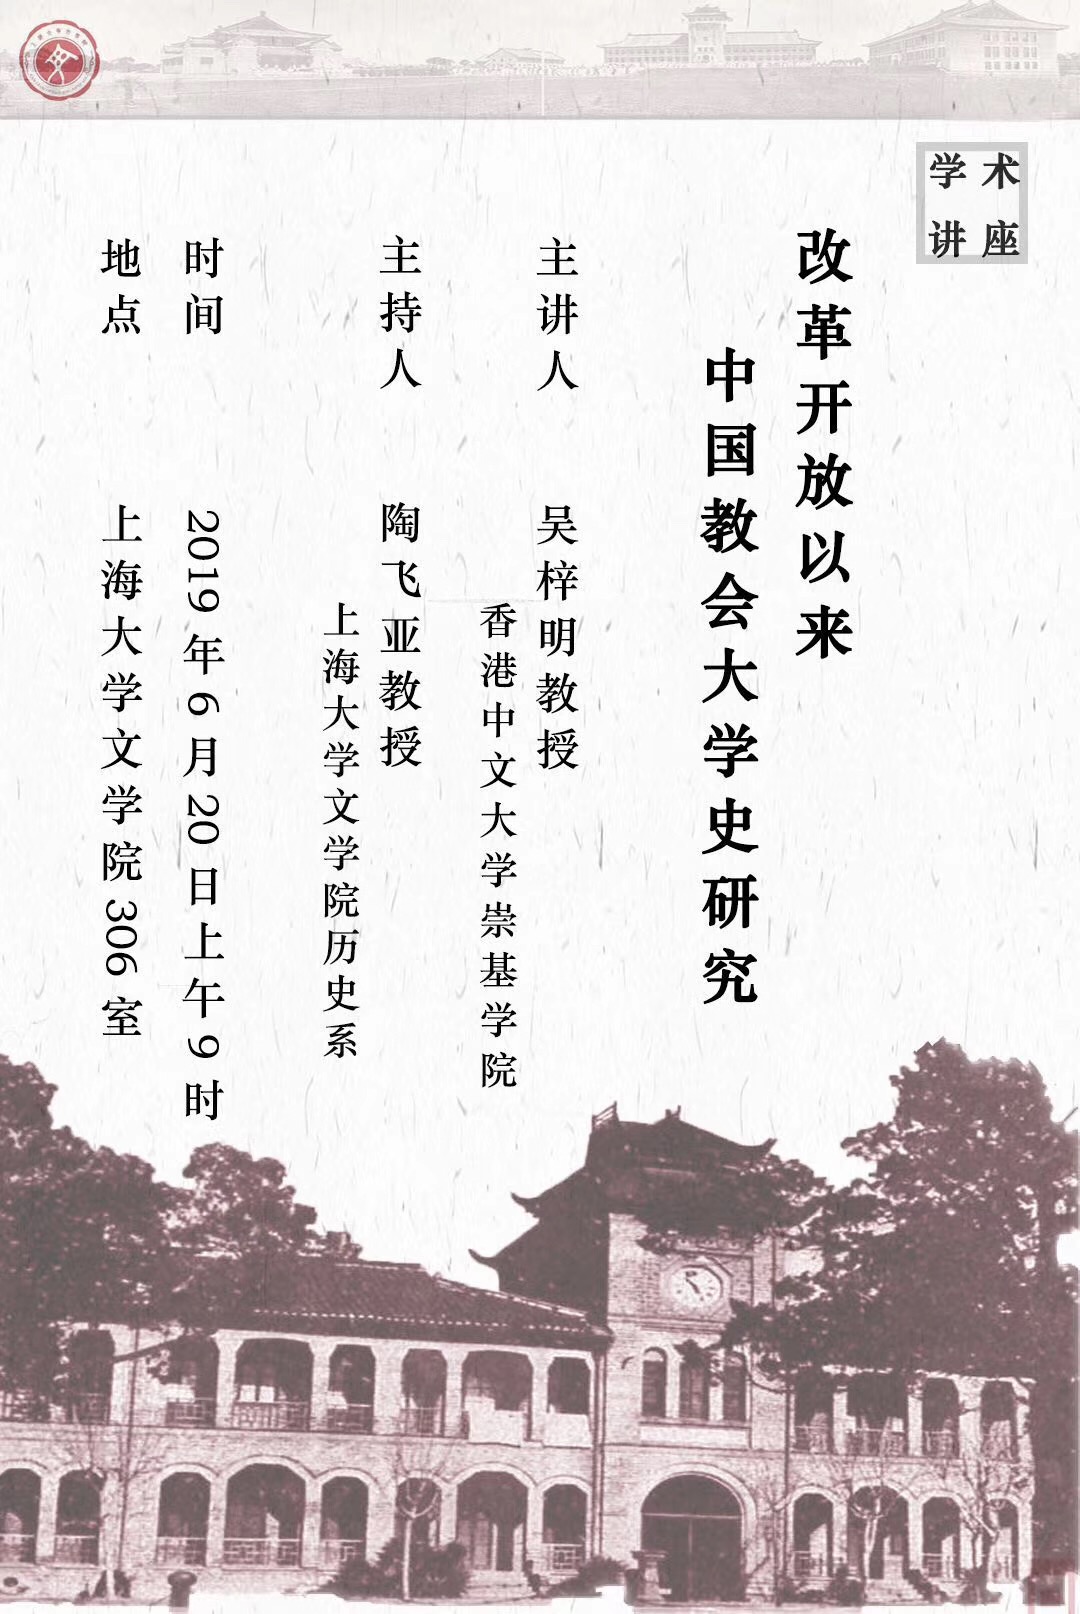 学术
讲座
改革开放以来
中国教会大学史研究
主讲人
吴梓明教授
香港中文大学崇基学院
主持人
陶飞亚教授
上海大学文学院历史系
时间
2019年6月20日上午9时
地点
上海大学文学院306室